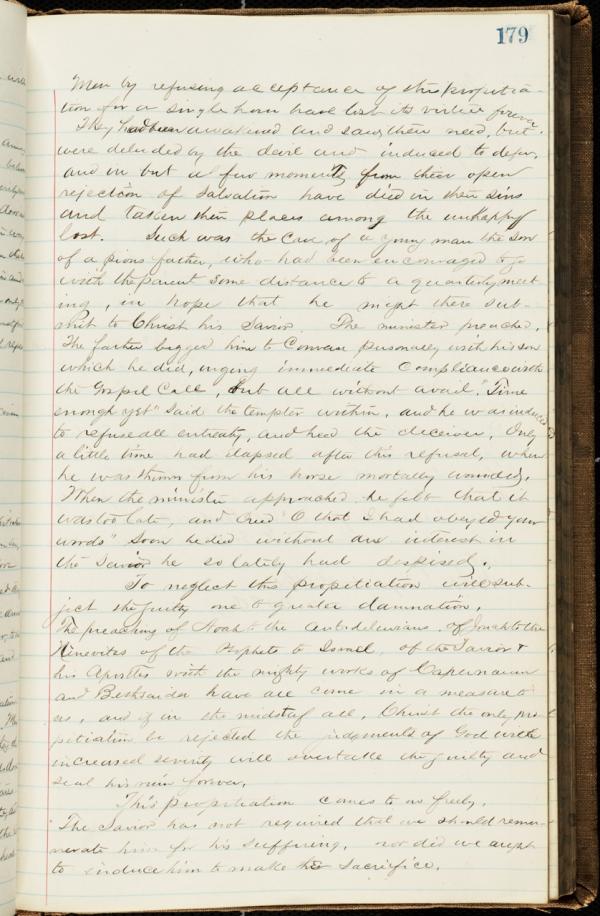 179
Men by refusing acceptance of this propitia-
tion for a single hour have lost its virtue forever.
They had been awakened and saw their need, but
were deluded by the devil and induced to defer,
and in but a few moments from their open
rejection of Salvation have died in their sins
and taken their places among the unhappy
lost. Such was the case, of a young man the son
of a pious father, who had been encouraged to go
with the parent some distance to a quarterly meet
ing, in hope that he might there sub-
mit to Christ his Savior. The minister preached,
The father begged him to Converse personally with his son
which he did, urging immediate Compliance with
the Gospel Call, but all without avail. "Time
enough yet" said the tempter within, and he was induced
to refuse all entreaty, and heed the deceiver, Only
a little time had elapsed after this refusal, when
he was thrown from his horse mortally wounded,
When the minister approached he felt that it
was too late, and cried "O that I had obeyed your
words" Soon he died without an interest in
the Savior he so lately had despised.
To neglect this propitiation will sub-
ject the guilty one to greater damnation,
The preaching of Noah to the antideluvians. Of Jonah to the
Ninevites of the Prophets to Israel, of the Savior &
his Apostles with the mighty works of Capernaum
and Bethsaida have all come in a measure to
us, and if in the midst of all, Christ the only pro-
pitiation be rejected the judgements of God with
increased severity will overtake the guilty and
seal his ruin forever,
This propitiation comes to us freely.
The Savior has not required that we should remu-
nerate him for his suffering, nor did we aught
to induce him to make the Sacrifice.